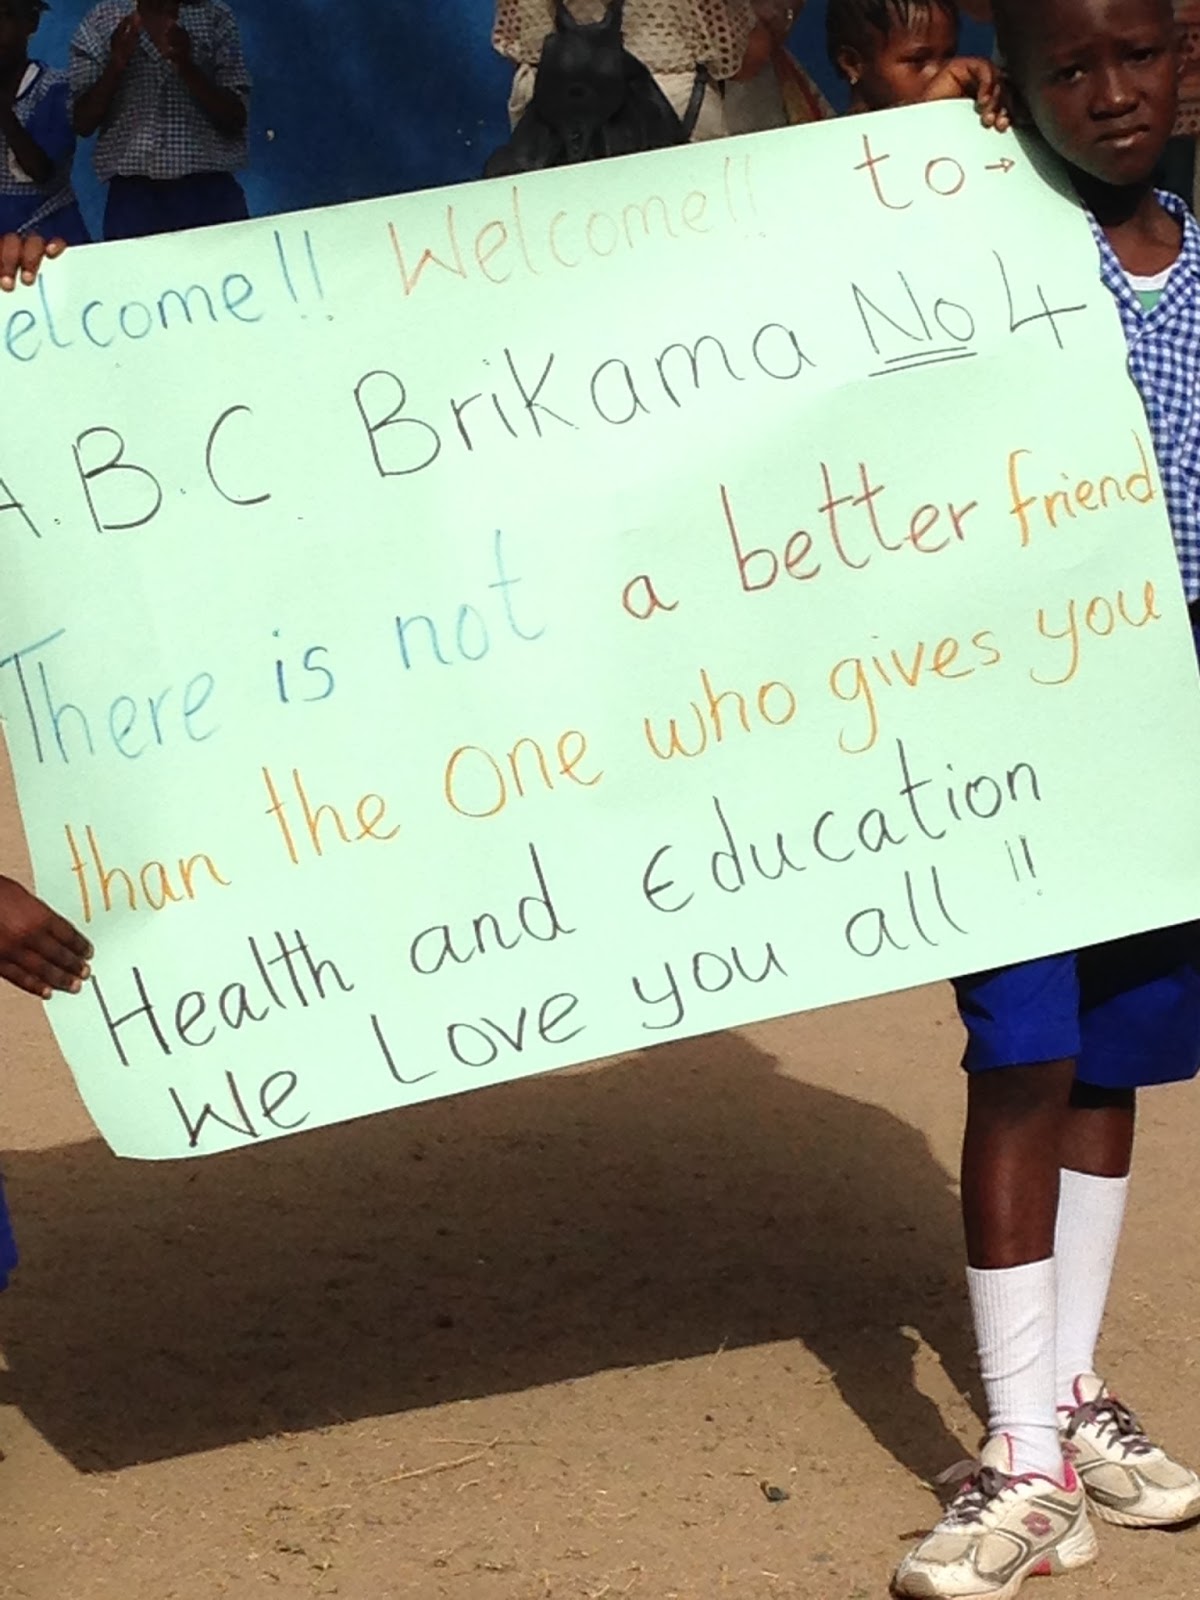 elcome!! Welcome!! to→
A.B.C Brikama No 4
There is not a better friend
than the One who gives you
Health and Education
We Love you all !!